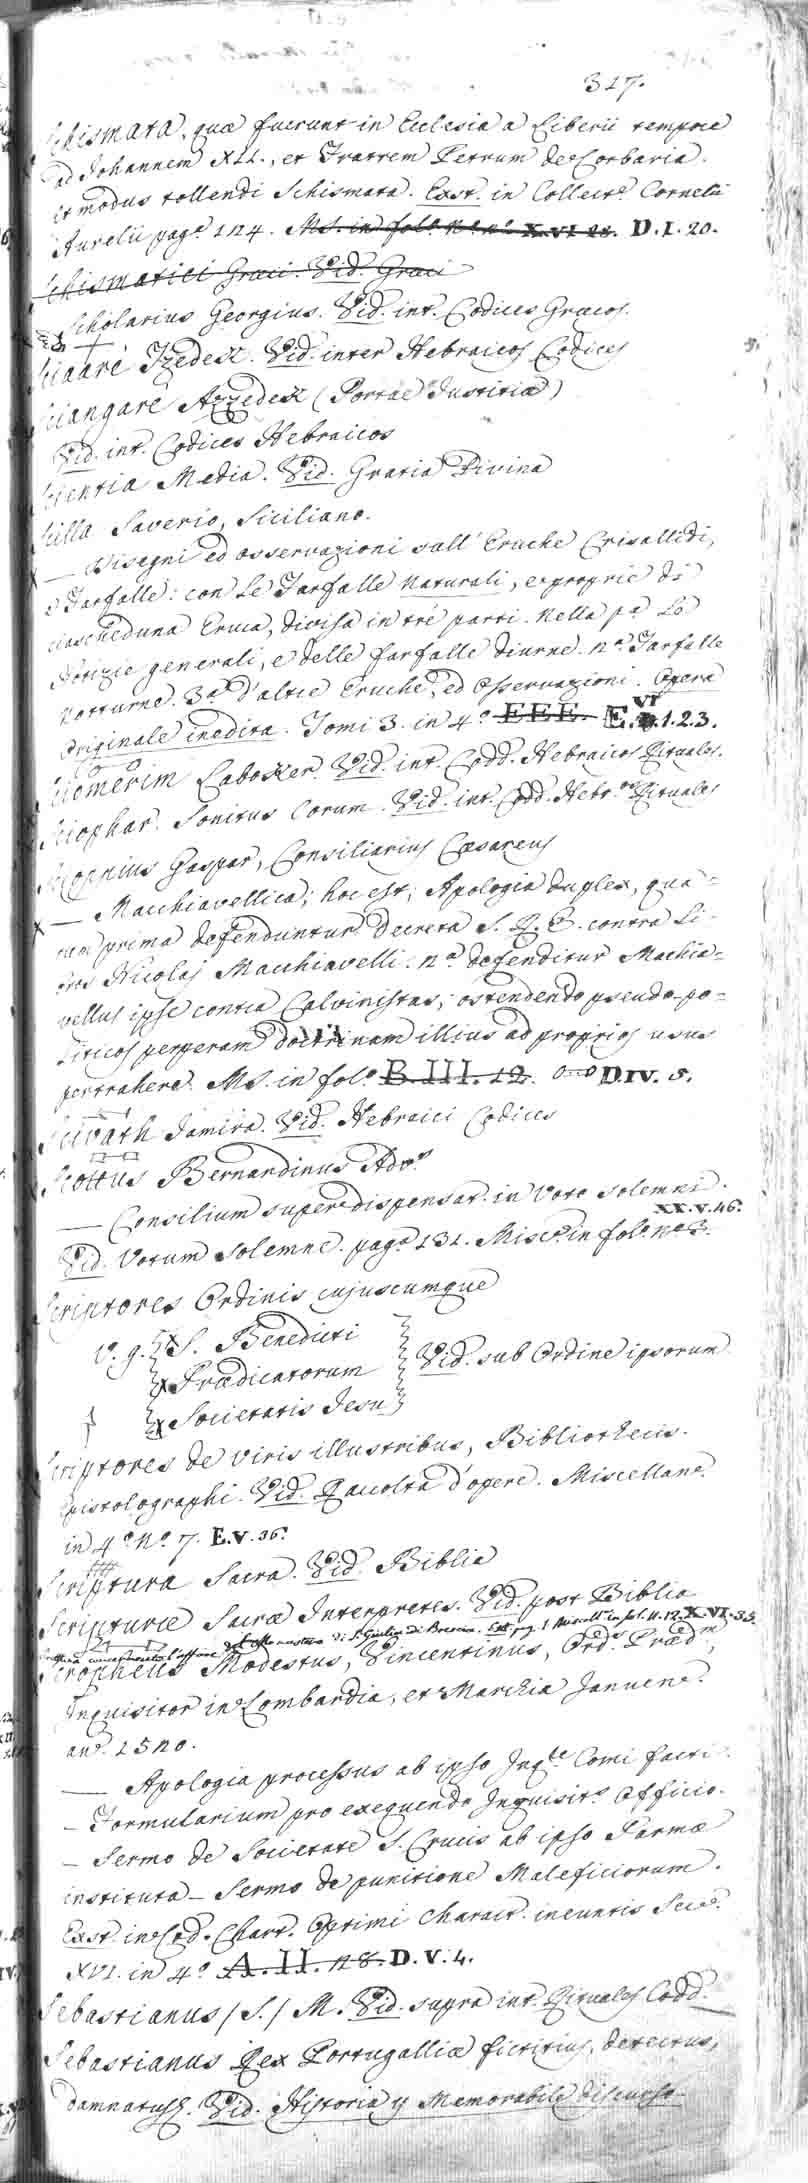 327.
Schismata, quæ fuerunt in Ecclesia a Liberii tempore
ad Johannem XII., et Fratrem Petrum de Corbaria.
et modus tollendi Schismata. Exst. in Collect.e Cornelii
Aurelii pag.e 124. MS. in fol.o N.o X.VI. D.I.20.
Schismatici Græci. Vid. Græci
Scholarius Georgius. Vid. int. Codices Græcos.
Sciaarè Tzedek. Vid. inter Hebraicos Codices
Sciangare Azzedek (Portæ Justitiæ)
Vid. int. Codices Hebraicos
Scientia Media. Vid. Gratia Divina
Scilla Saverio, Siciliano.
— Disegni ed osservazioni sull' Eruche Crisallidi,
e Farfalle: con le Farfalle naturali, e proprie di
ciascheduna Eruca, divisa in trè parti. Nella p.a le
Notizie generali, e delle farfalle diurne. 2.a Farfalle
Notturne. 3.a d'altre Eruche, ed Osservazioni. Opera
Originale inedita. Tomi 3. in 4.o EEE. E.VI.1.2.3.
Sciomerim Labosker. Vid. int. Codd. Hebraicos Rituales.
Sciophar. Sonitus Cornu. Vid. int. Codd. Hebr.os Rituales
Scioppius Gaspar, Consiliarius Cæsareus
— Macchiavellica; hoc est, Apologia duplex, qua-
rum prima defenduntur Decreta S. R. E. contra Li-
bros Nicolaj Macchiavelli: 2.a defenditur Machia-
vellus ipse contra Calvinistas; ostendendo pseudo-po-
liticos perperam doctrinam illius ad proprios usus
pertrahere. MS. in fol.o B.III.12. D.IV.5.
Scivath Jamira. Vid. Hebraici Codices
Scottus Bernardinus Adv.s
— Consilium super dispensat. in Voto solemni.
Vid. Votum solemne. pag.e 131. Misc.e in fol.o n.o 3. XX.V.46.
Scriptores Ordinis cujuscumque
v.g. S. Benedicti
Prædicatorum Vid. sub Ordine ipsorum
Societatis Jesu
Scriptores de viris illustribus, Bibliothecis.
Epistolographi. Vid. Raccolta d'opere. Miscellane.
in 4.o N.o 7. E.V.36.
Scriptura Sacra. Vid. Biblia
Scripturæ Sacræ Interpretes. Vid. post Biblia
di S. Giulia di Brescia. Est. pag. 1 Miscell.e in fol. N.12. X.VI.35.
Scropheus Modestus, Vincentinus, Ord.s Præd.m,
Inquisitor in Lombardia, et Marchia Januene.
an. 1520.
— Apologia processus ab ipso Inq.te Comi facti.
— Formularium pro exequendo Inquisit.s Officio.
— Sermo de Societate S. Crucis ab ipso Parmæ
instituta — Sermo de punitione Maleficiorum.
Exst. in Cod. Chart. Optimi Charact. ineuntis Sec.
XVI. in 4.o A.II.28. D.V.4.
Sebastianus (S.) M. Vid. supra int. Rituales Codd.
Sebastianus Rex Portugalliæ fictitius, detectus,
damnatusq. Vid. Historia y Memorabile discurso